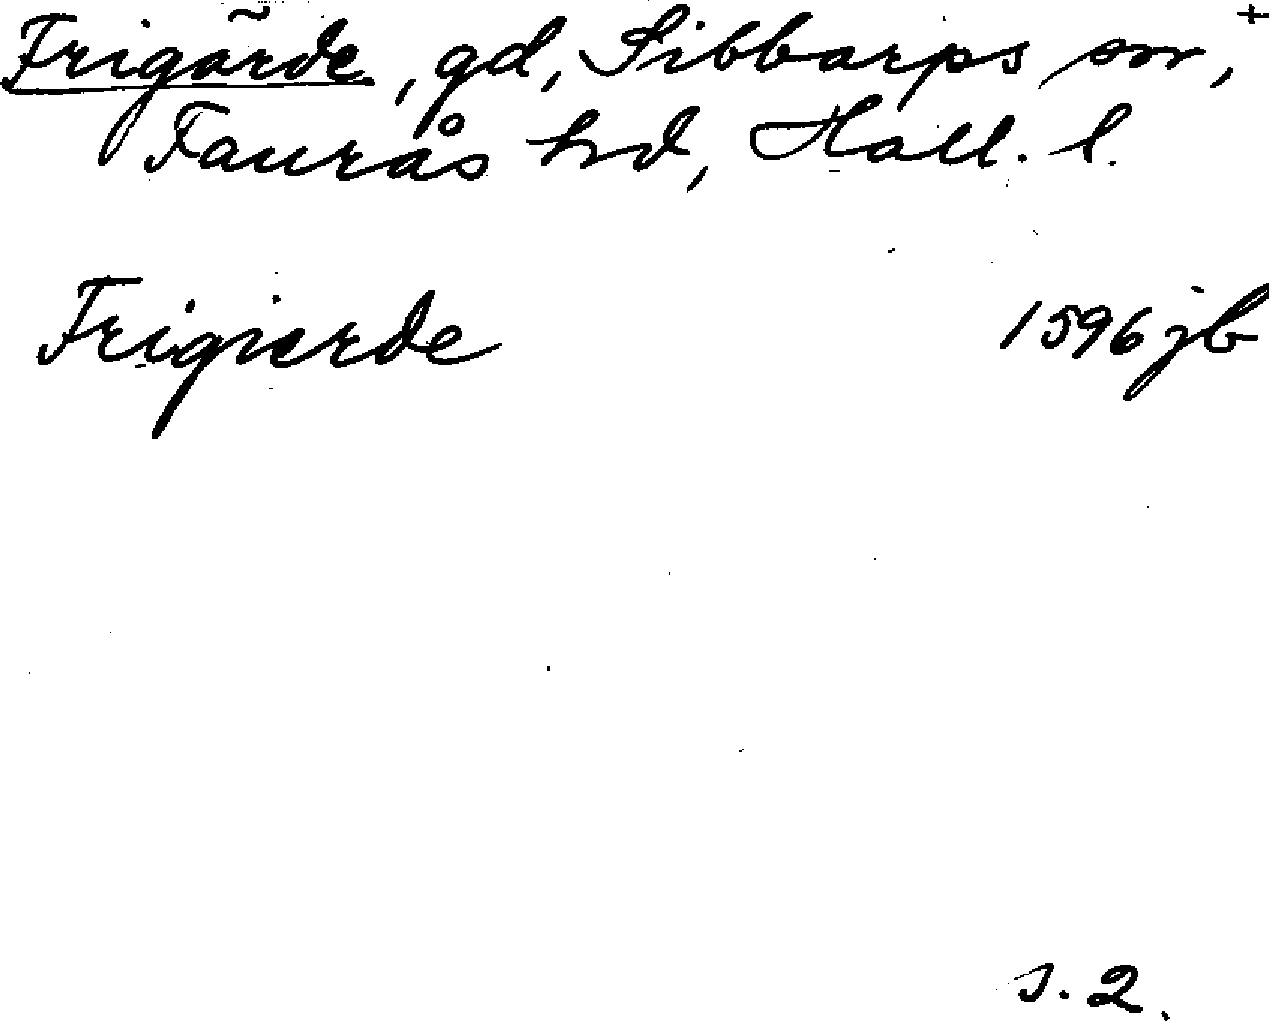 Frigärde, gd, Sibbarps sn, +
Faurås hd, Hall. l.
Frigierde 1596 jb
s. 2.